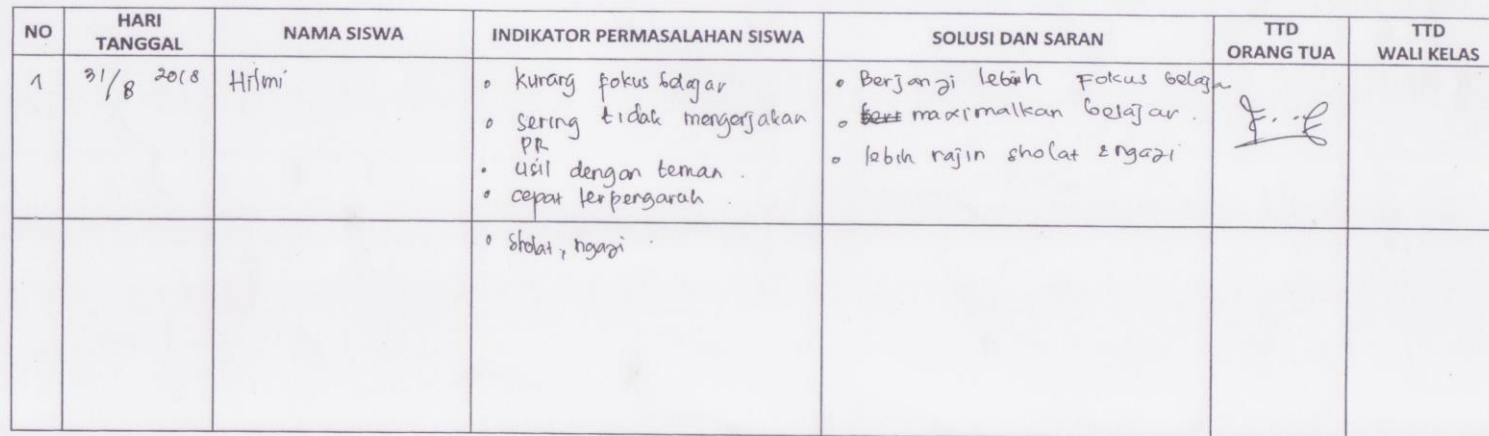 NO HARI TANGGAL NAMA SISWA INDIKATOR PERMASALAHAN SISWA SOLUSI DAN SARAN TTD ORANG TUA TTD WALI KELAS
1 31/8 2018 Hilmi
• kurang fokus belajar
• sering tidak mengerjakan
PR
• usil dengan teman.
• cepat terpengaruh
• Berjanji lebih fokus belajar
• maximalkan belajar.
• lebih rajin sholat & ngaji
• sholat, ngaji.